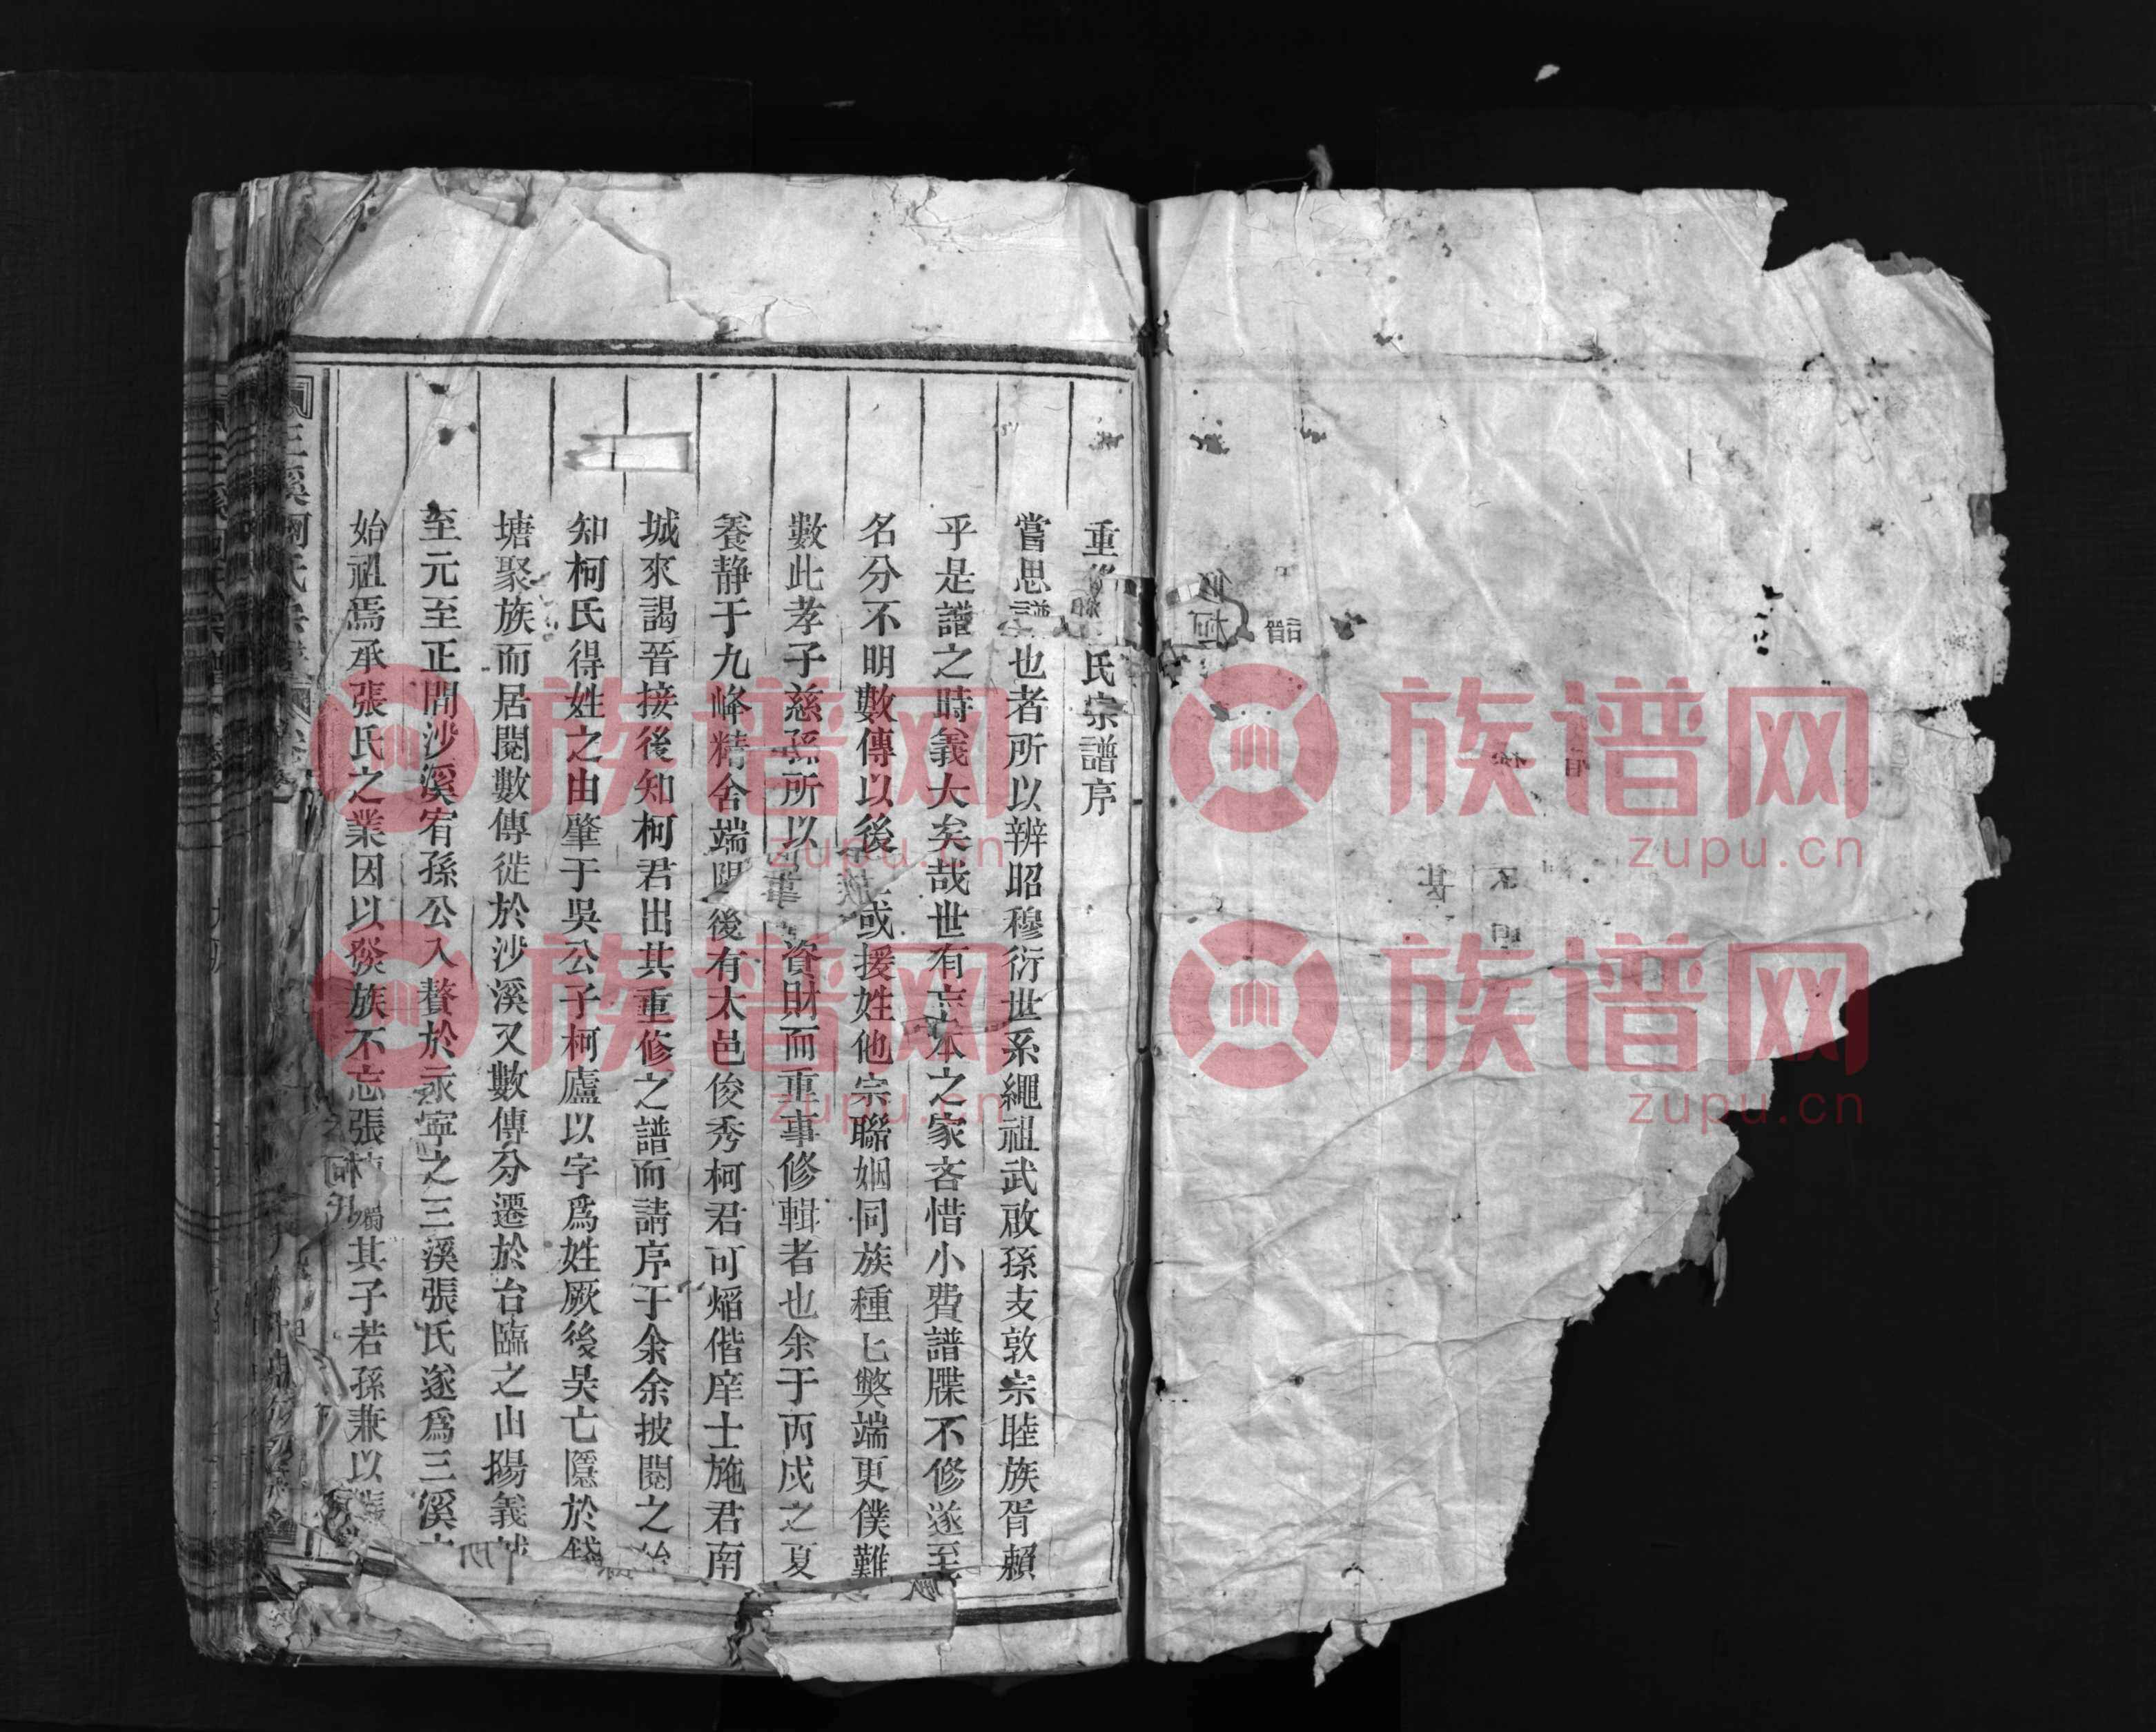 重修 氏宗譜序
嘗思譜也者所以辨昭穆衍世系繩祖武啟孫支敦宗睦族胥賴
乎是譜之時義大矣哉世有忘本之家吝惜小費譜牒不修遂至
名分不明數傳以後 或援姓他宗聯姻同族種七弊端更僕難
數此孝子慈孫所以 資財而重事修輯者也余于丙戌之夏
養静于九峰精舍端陽後有太邑俊秀柯君可熖偕庠士施君南
城來謁晉接後知柯君出其重修之譜而請序于余余披閱之始
知柯氏得姓之由肇于吳公子柯廬以字爲姓厥後吳亡隱於錢
塘聚族而居閱數傳徙於沙溪又數傳分遷於台臨之山揚義城
至元至正間沙溪宥孫公入贅於永寧之三溪張氏遂爲三溪
始祖焉承張氏之業因以發族不忘張 其子若孫兼以張
三溪柯氏宗譜
族谱网
zupu.cn
族谱网
zupu.cn
族谱网
zupu.cn
族谱网
zupu.cn